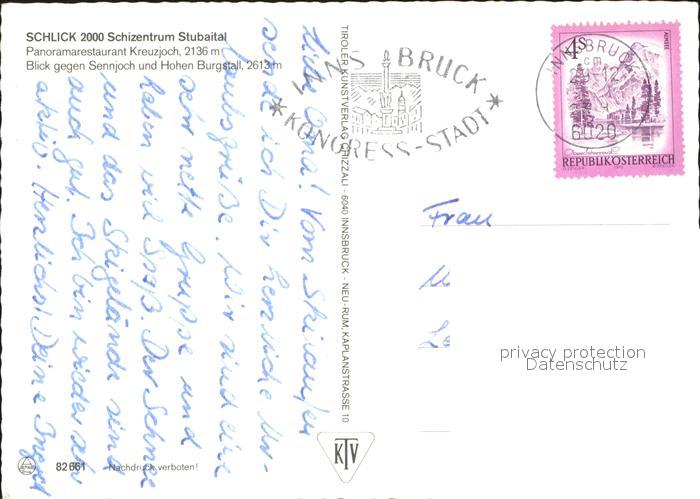 SCHLICK 2000 Schizentrum Stubaital
Panoramarestaurant Kreuzjoch, 2136 m
Blick gegen Sennjoch und Hohen Burgstall, 2613 m
Liebe Oma! Vom Skiurlaub
sende ich Dir herzliche Ur-
laubsgrüße. Wir sind eine
sehr nette Gruppe und
haben viel Spaß. Der Schnee
und das Skigelände sind
auch gut. Ich bin wieder sehr
aktiv. Herzlichst Deine Ingrid
82661 Nachdruck verboten!
TIROLER KUNSTVERLAG CHIZZALI · 6040 INNSBRUCK - NEU-RUM, KAPLANSTRASSE 10
KTV
INNSBRUCK
KONGRESS-STADT
INNSBRUCK
6020
4 S
ALMSEE
REPUBLIK ÖSTERREICH
Frau
privacy protection
Datenschutz